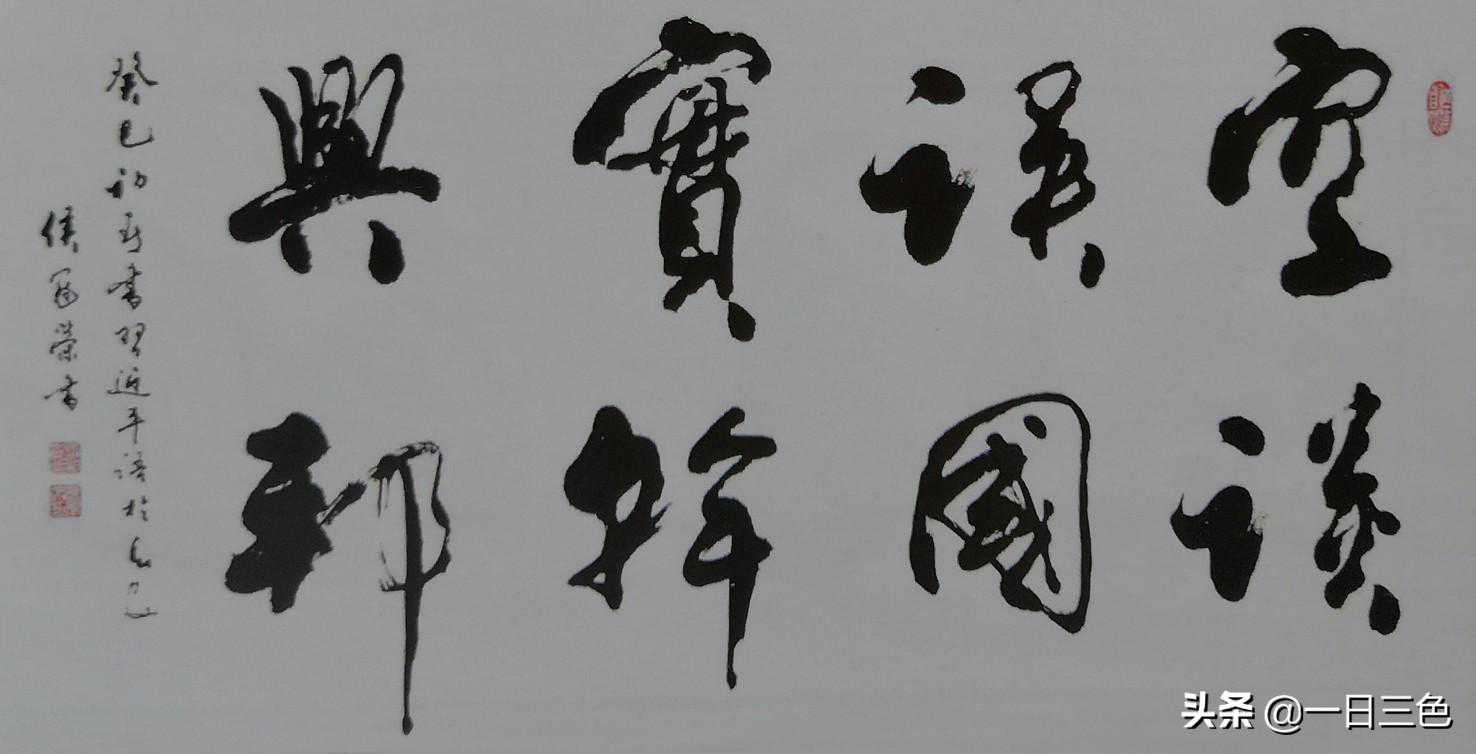 空談
誤國
實幹
興邦
癸巳初春書習近平語於
侯冠榮書
头条 @一日三色